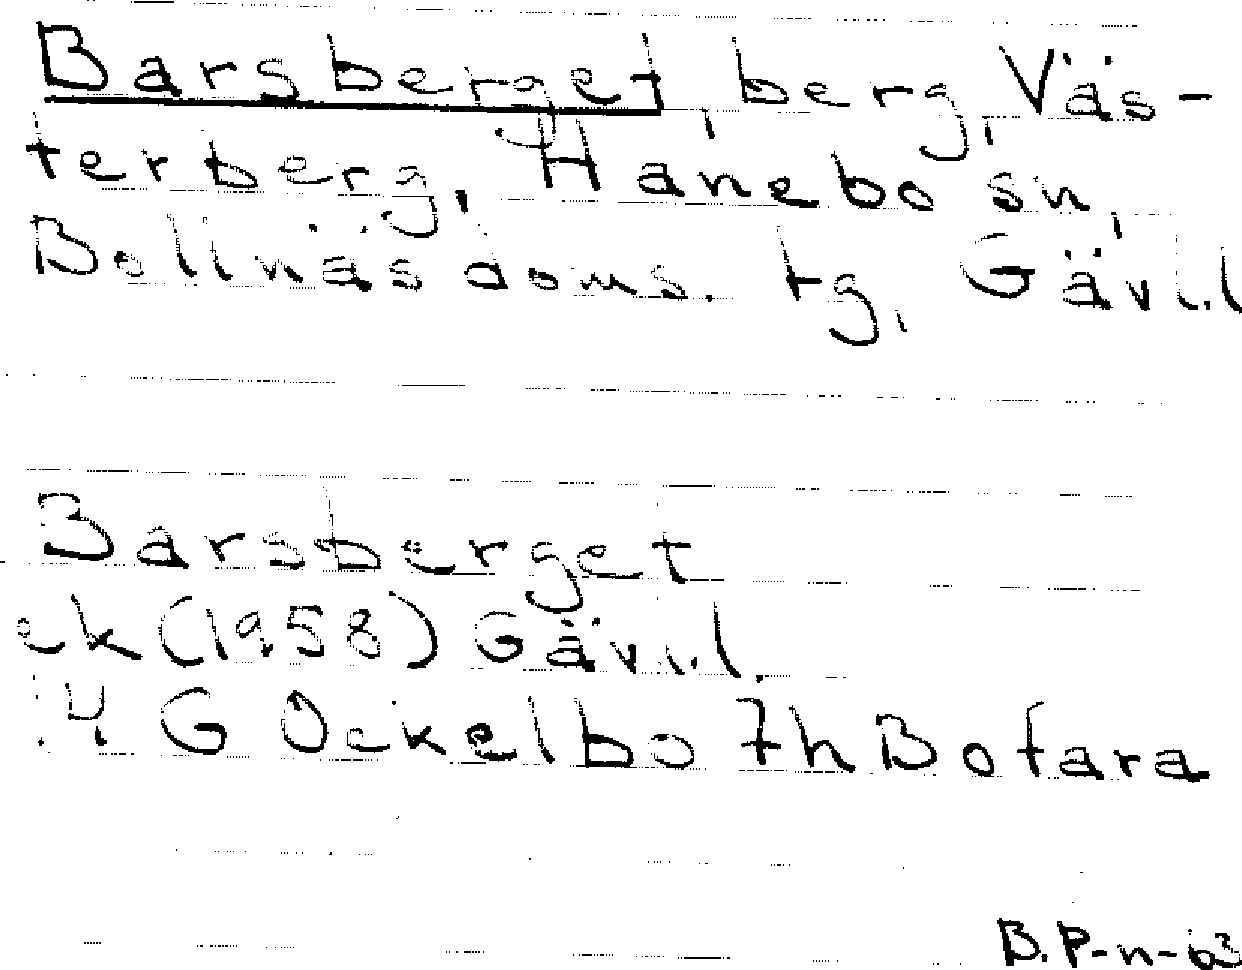 Barsberget, berg, Väs-
terberg, Hanebo sn,
Bollnäs doms. tg, Gävl.l
Barsberget
ek (1958) Gävl.l.
14 G Ockelbo 7h Bofara
B.P-n-63